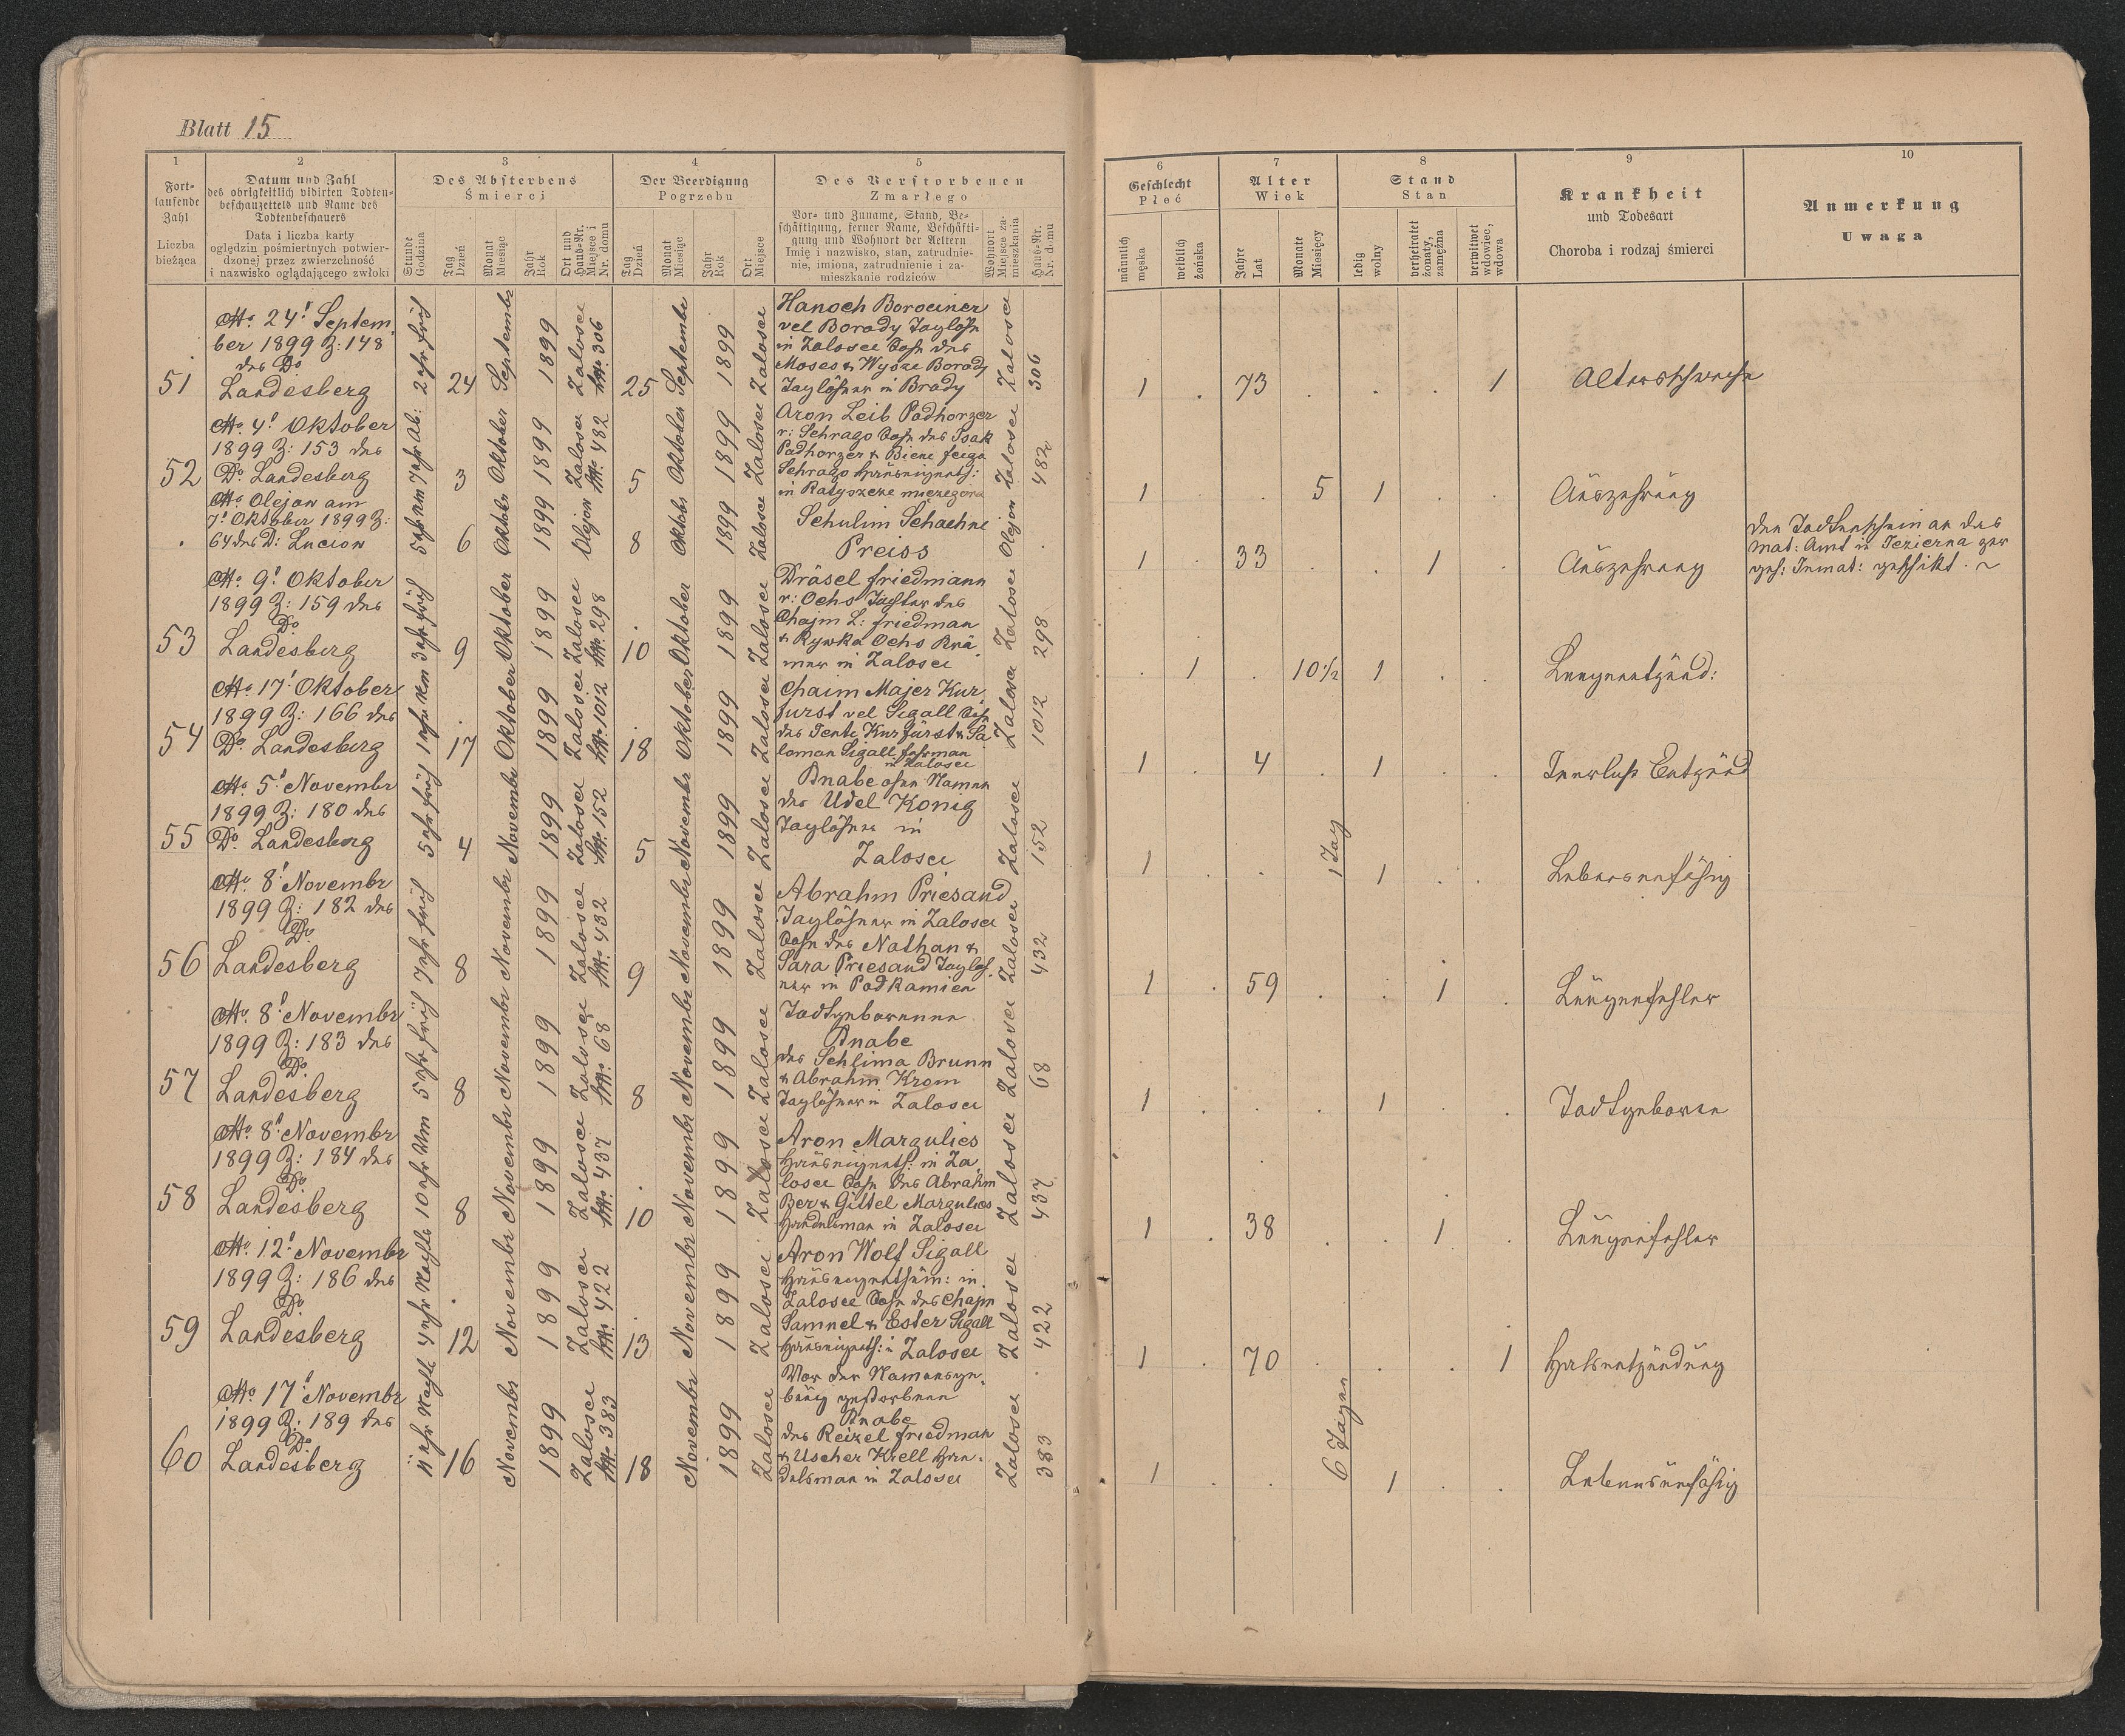 Blatt 15
1
2
3
4
5
Fort-
laufende
Zahl
Liczba
bieżąca
Datum und Zahl
des obrigkeitlich vidirten Todten-
beschauzettels und Name des
Todtenbeschauers
Data i liczba karty
oględzin pośmiertnych potwier-
dzonej przez zwierzchność
i nazwisko oglądającego zwłoki
Des Absterbens
Śmierci
Stunde
Godzina
Tag
Dzień
Monat
Miesiąc
Jahr
Rok
Ort und
Haus-Nr.
Miejsce i
Nr. domu
Der Beerdigung
Pogrzebu
Tag
Dzień
Monat
Miesiąc
Jahr
Rok
Ort
Miejsce
Des Verstorbenen
Zmarłego
Vor- und Zuname, Stand, Be-
schäftigung, ferner Name, Beschäfti-
gung und Wohnort der Aeltern
Imię i nazwisko, stan, zatrudnie-
nie, imiona, zatrudnienie i za-
mieszkanie rodziców
Wohnort
Miejsce za-
mieszkania
Haus-Nr.
Nr. domu
6
7
8
9
10
Geschlecht
Płeć
männlich
męska
weiblich
żeńska
Alter
Wiek
Jahre
Lat
Monate
Miesięcy
Stand
Stan
ledig
wolny
verheiratet
żonaty,
zamężna
verwitwet
wdowiec,
wdowa
Krankheit
und Todesart
Choroba i rodzaj śmierci
Anmerkung
Uwaga
51
24! Septem.
ber 1899 Z: 148
des Dr
Landesberg
2 uhr früh
24
Septembr
1899
Zalosce
306
25
Septembr
1899
Zalosce
Hanoch Boroeiner
vel Borody Taglöhn
in Zalosce Sohn des
Moses & Wysze Borody
Taglöhner in Brody
Zalosce
306
1
73
1
Altersschwache
52
4! Oktober
1899 Z: 153 des
Dr Landesberg
7 uhr Ab:
3
Oktober
1899
Zalosce
482
5
Oktober
1899
Zalosce
Aron Leib Podhorzer
r: Schrago Sohn des Isak
Podhorzer & Biene feiga
Schrago Hauseigenth:
in Ratyszcze
Zalosce
482
1
5
1
Auszehrung
Olejow am
7! Oktober 1899 Z:
64 des D: Lucion
6
Oktobr
1899
Olejow
8
Oktobr
1899
Zalosce
Schulim Schachne
Preiss
Olejow
1
33
1
Auszehrung
den Todtenschein an das
mat: Amt in Jezierna zur
geh: Inmat: geschikt
53
9! Oktober
1899 Z: 159 des
Dr
Landesberg
3 uhr früh
9
Oktober
1899
Zalosce
298
10
Oktober
1899
Zalosce
Dräsel friedmann
r: Ochs Tochter des
Chajm L: friedman
& Rywka Ochs Krä-
mer in Zalosce
Zalosce
298
1
10 1/2
1
Lungenentzünd:
54
17! Oktober
1899 Z: 166 des
Dr Landesberg
1 uhr Nm
17
Oktober
1899
Zalosce
1012
18
Oktober
1899
Zalosce
Chaim Majer Kur-
furst vel Sigall Sohn
des Tente Kurfürst & Sa
loman Sigall fuhrman
in Zalosce
Zalosce
1012
1
4
1
55
5! Novembr
1899 Z: 180 des
Dr Landesberg
5 uhr früh
4
Novembr
1899
Zalosce
152
5
Novembr
1899
Zalosce
Knabe ohne Namen
des Udel Konig
Taglöhner in
Zalosce
Zalosce
152
1
1 Tag
1
Lebensunfähig
56
8! Novembr
1899 Z: 182 des
Dr
Landesberg
7 uhr früh
8
Novembr
1899
Zalosce
432
9
Novembr
1899
Zalosce
Abrahm Priesand
Taglöhner in Zalosce
Sohn des Nathan &
Sara Priesand Tagloh-
ner in Podkamien
Zalosce
432
1
59
1
Lungenfehler
57
8! Novembr
1899 Z: 183 des
Dr
Landesberg
5 uhr früh
8
Novembr
1899
Zalosce
68
8
Novembr
1899
Zalosce
Todtgeborenne
Knabe
des Schlima Brunn
& Abrahm Krom
Taglöhner in Zalosce
Zalosce
68
1
1
Todtgeboren
58
8! Novembr
1899 Z: 184 des
Dr
Landesberg
10 uhr Nm
8
Novembr
1899
Zalosce
437
10
Novembr
1899
Zalosce
Aron Margulies
Hauseigenth: in Za
losce Sohn des Abrahm
Ber & Gittel Margulies
Handelsman in Zalosce
Zalosce
437
1
38
1
Lungenfehler
59
12! Novembr
1899 Z: 186 des
Dr
Landesberg
4 uhr Nachts
12
Novembr
1899
Zalosce
422
13
Novembr
1899
Zalosce
Aron Wolf Sigall
Hauseigenthüm: in
Zalosce Sohn des Chajm
Samuel & Ester Sigall
Hauseigenth: in Zalosce
Zalosce
422
1
70
1
Halsentzündung
60
17! Novembr
1899 Z: 189 des
Dr
Landesberg
11 uhr Nacht
16
Novembr
1899
Zalosce
383
18
Novembr
1899
Zalosce
Vor der Namensge-
bung gestorbene
Knabe
des Reizel friedman
& Uscher Krell Han-
delsman in Zalosce
Zalosce
383
1
6 Tagen
1
Lebensunfähig